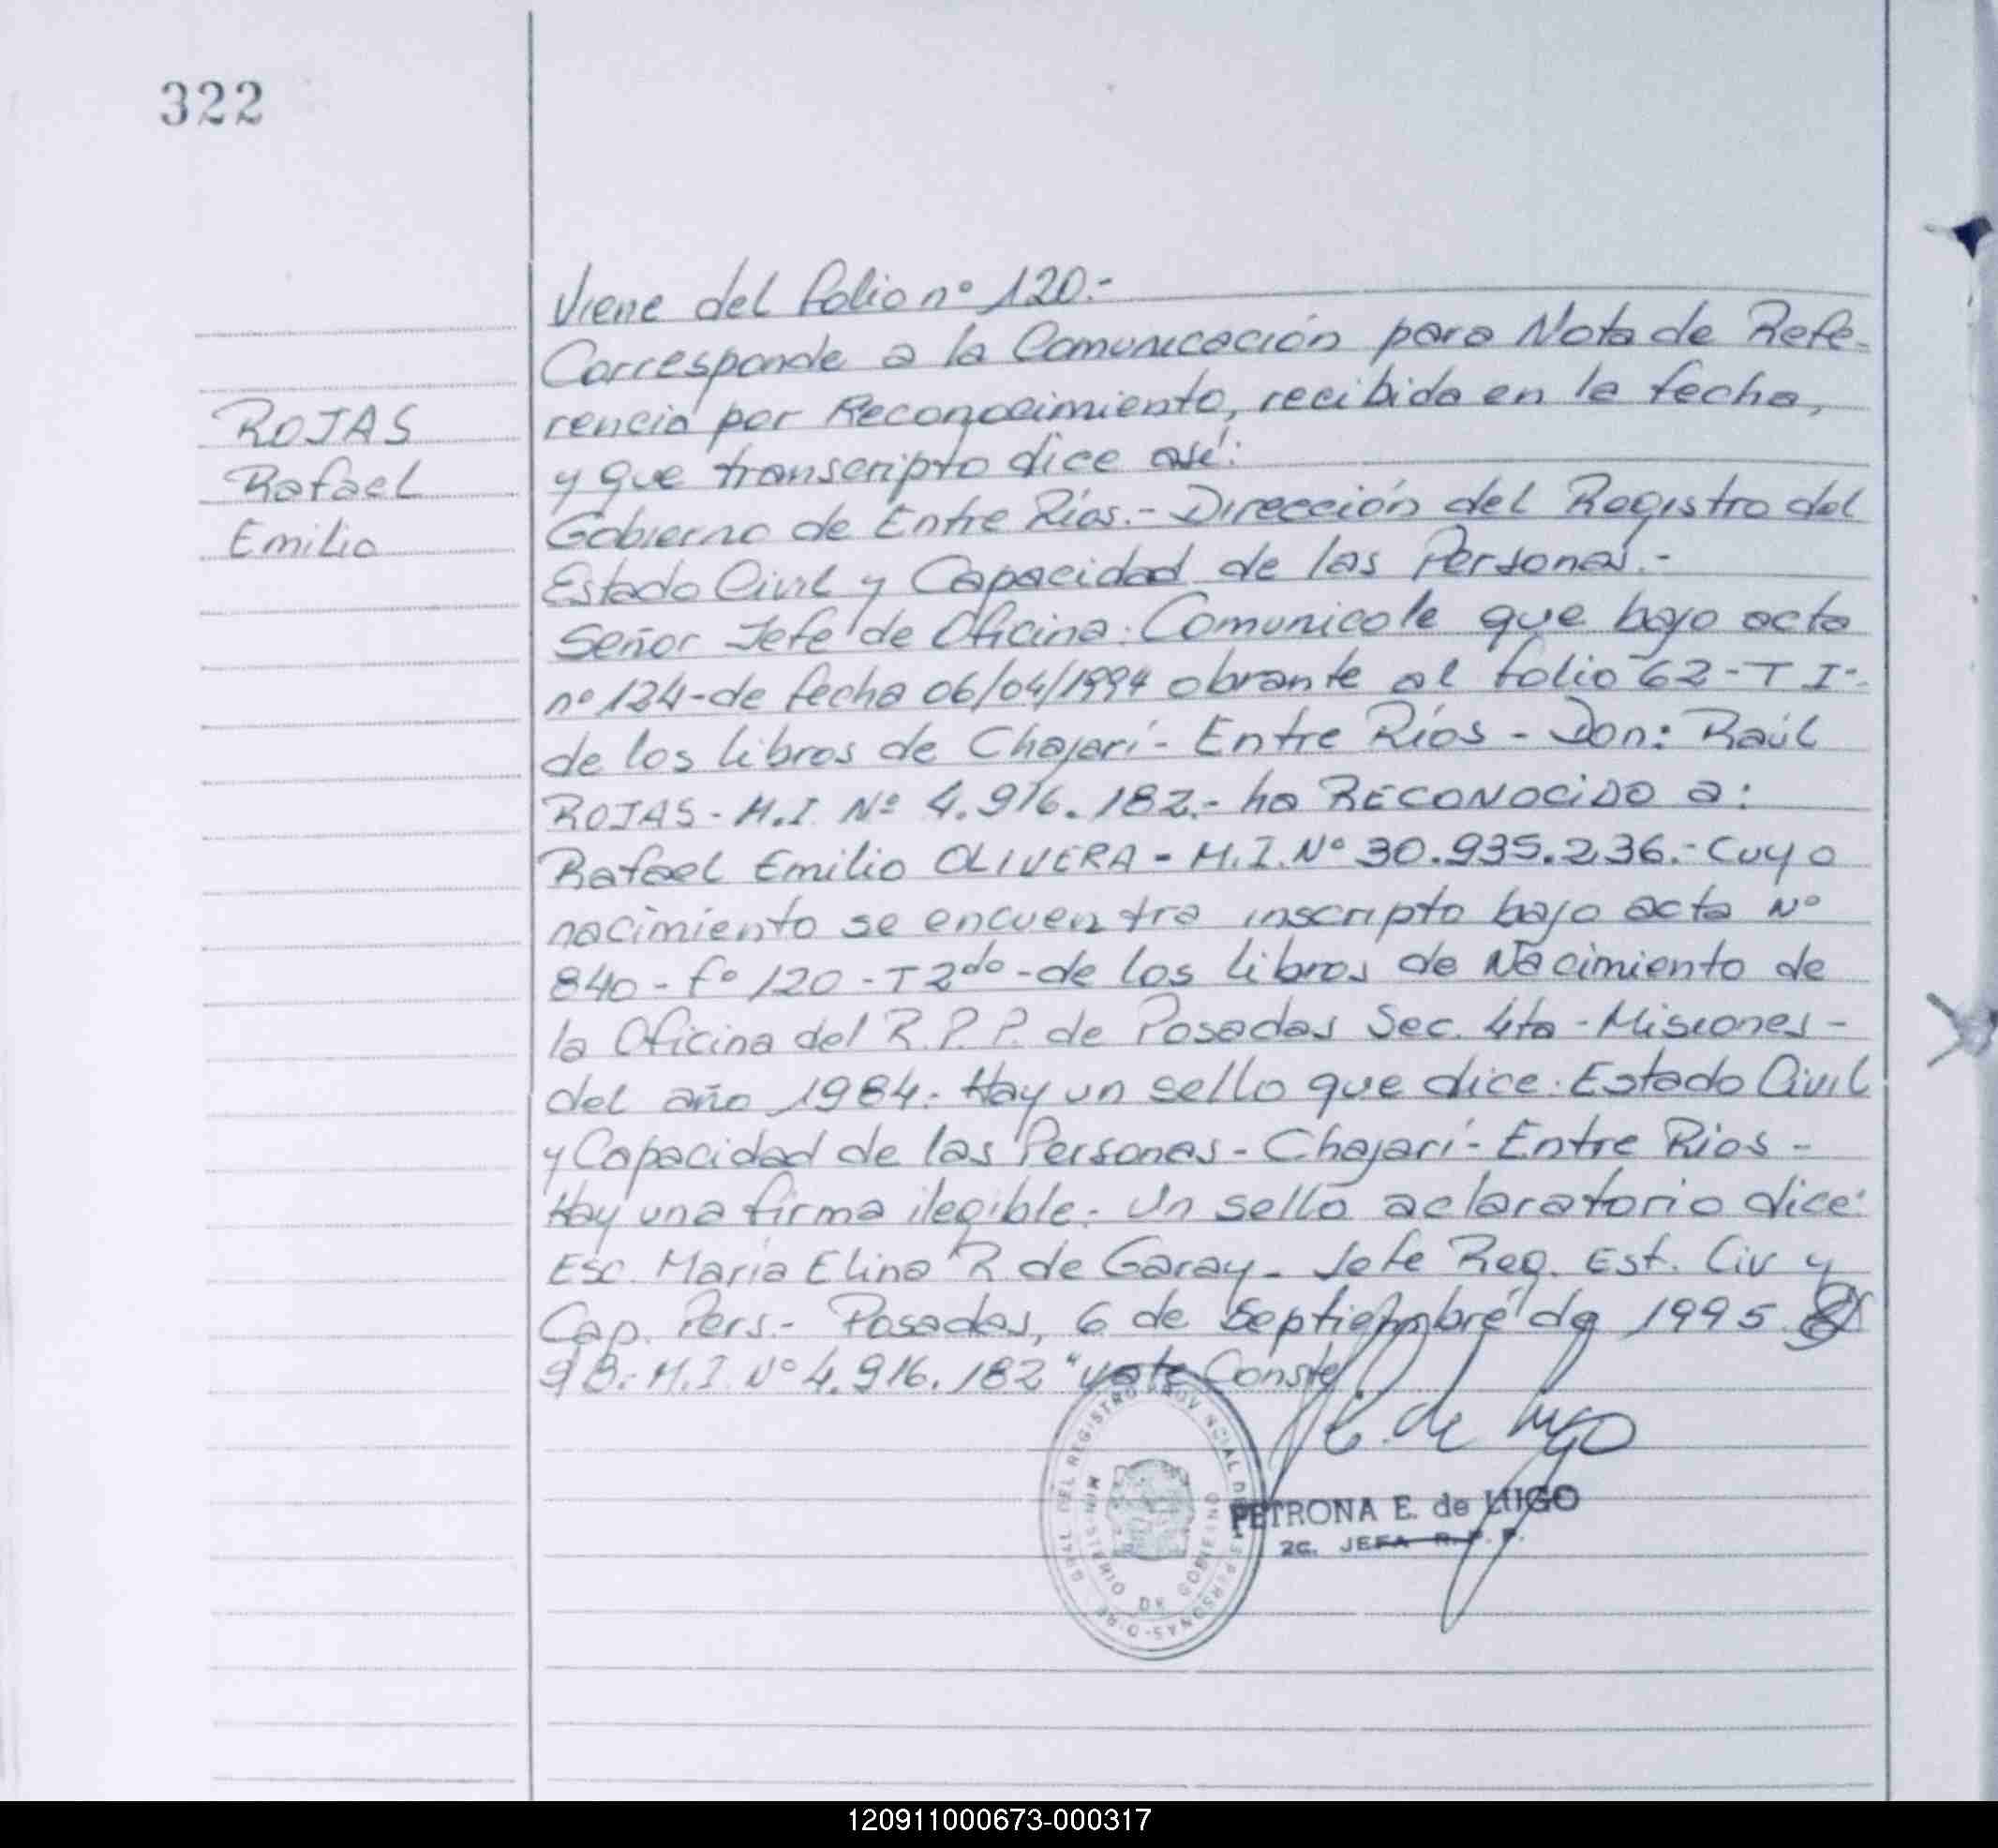 322
Viene del folio nº 120.-
Corresponde a la Comunicación para Nota de Refe-
rencia por Reconocimiento, recibida en la fecha,
y que transcripto dice así:
Gobierno de Entre Ríos.- Dirección del Registro del
Estado Civil y Capacidad de las Personas.-
Señor Jefe de Oficina: Comunicole que bajo acta
nº 124-de fecha 06/04/1994 obrante al folio 62-T I-
de los libros de Chajarí- Entre Ríos - Don: Raúl
ROJAS - M.I. Nº 4.916.182.- ha RECONOCIDO a:
Rafael Emilio OLIVERA - M.I. Nº 30.935.236.- Cuyo
nacimiento se encuentra inscripto bajo acta Nº
840 - fº 120 - T 2do - de los libros de Nacimiento de
la Oficina del R.P.P. de Posadas Sec. 4ta - Misiones -
del año 1984.- Hay un sello que dice: Estado Civil
y Capacidad de las Personas - Chajarí - Entre Rios -
Hay una firma ilegible.- Un sello aclaratorio dice:
Esc. María Elina R. de Garay - Jefe Reg. Est. Civ y
Cap. Pers.- Posadas, 6 de Septiembre de 1995
S/B.- M.I. Nº 4.916.182 "vale Conste
ROJAS
Rafael
Emilio
E. de Lugo
PETRONA E. de LUGO
2C. JEFA R. P. P.
GRAL. DEL REGISTRO PROVINCIAL DE LAS PERSONAS-DIRE
MINISTERIO DE GOBIERNO
120911000673-000317